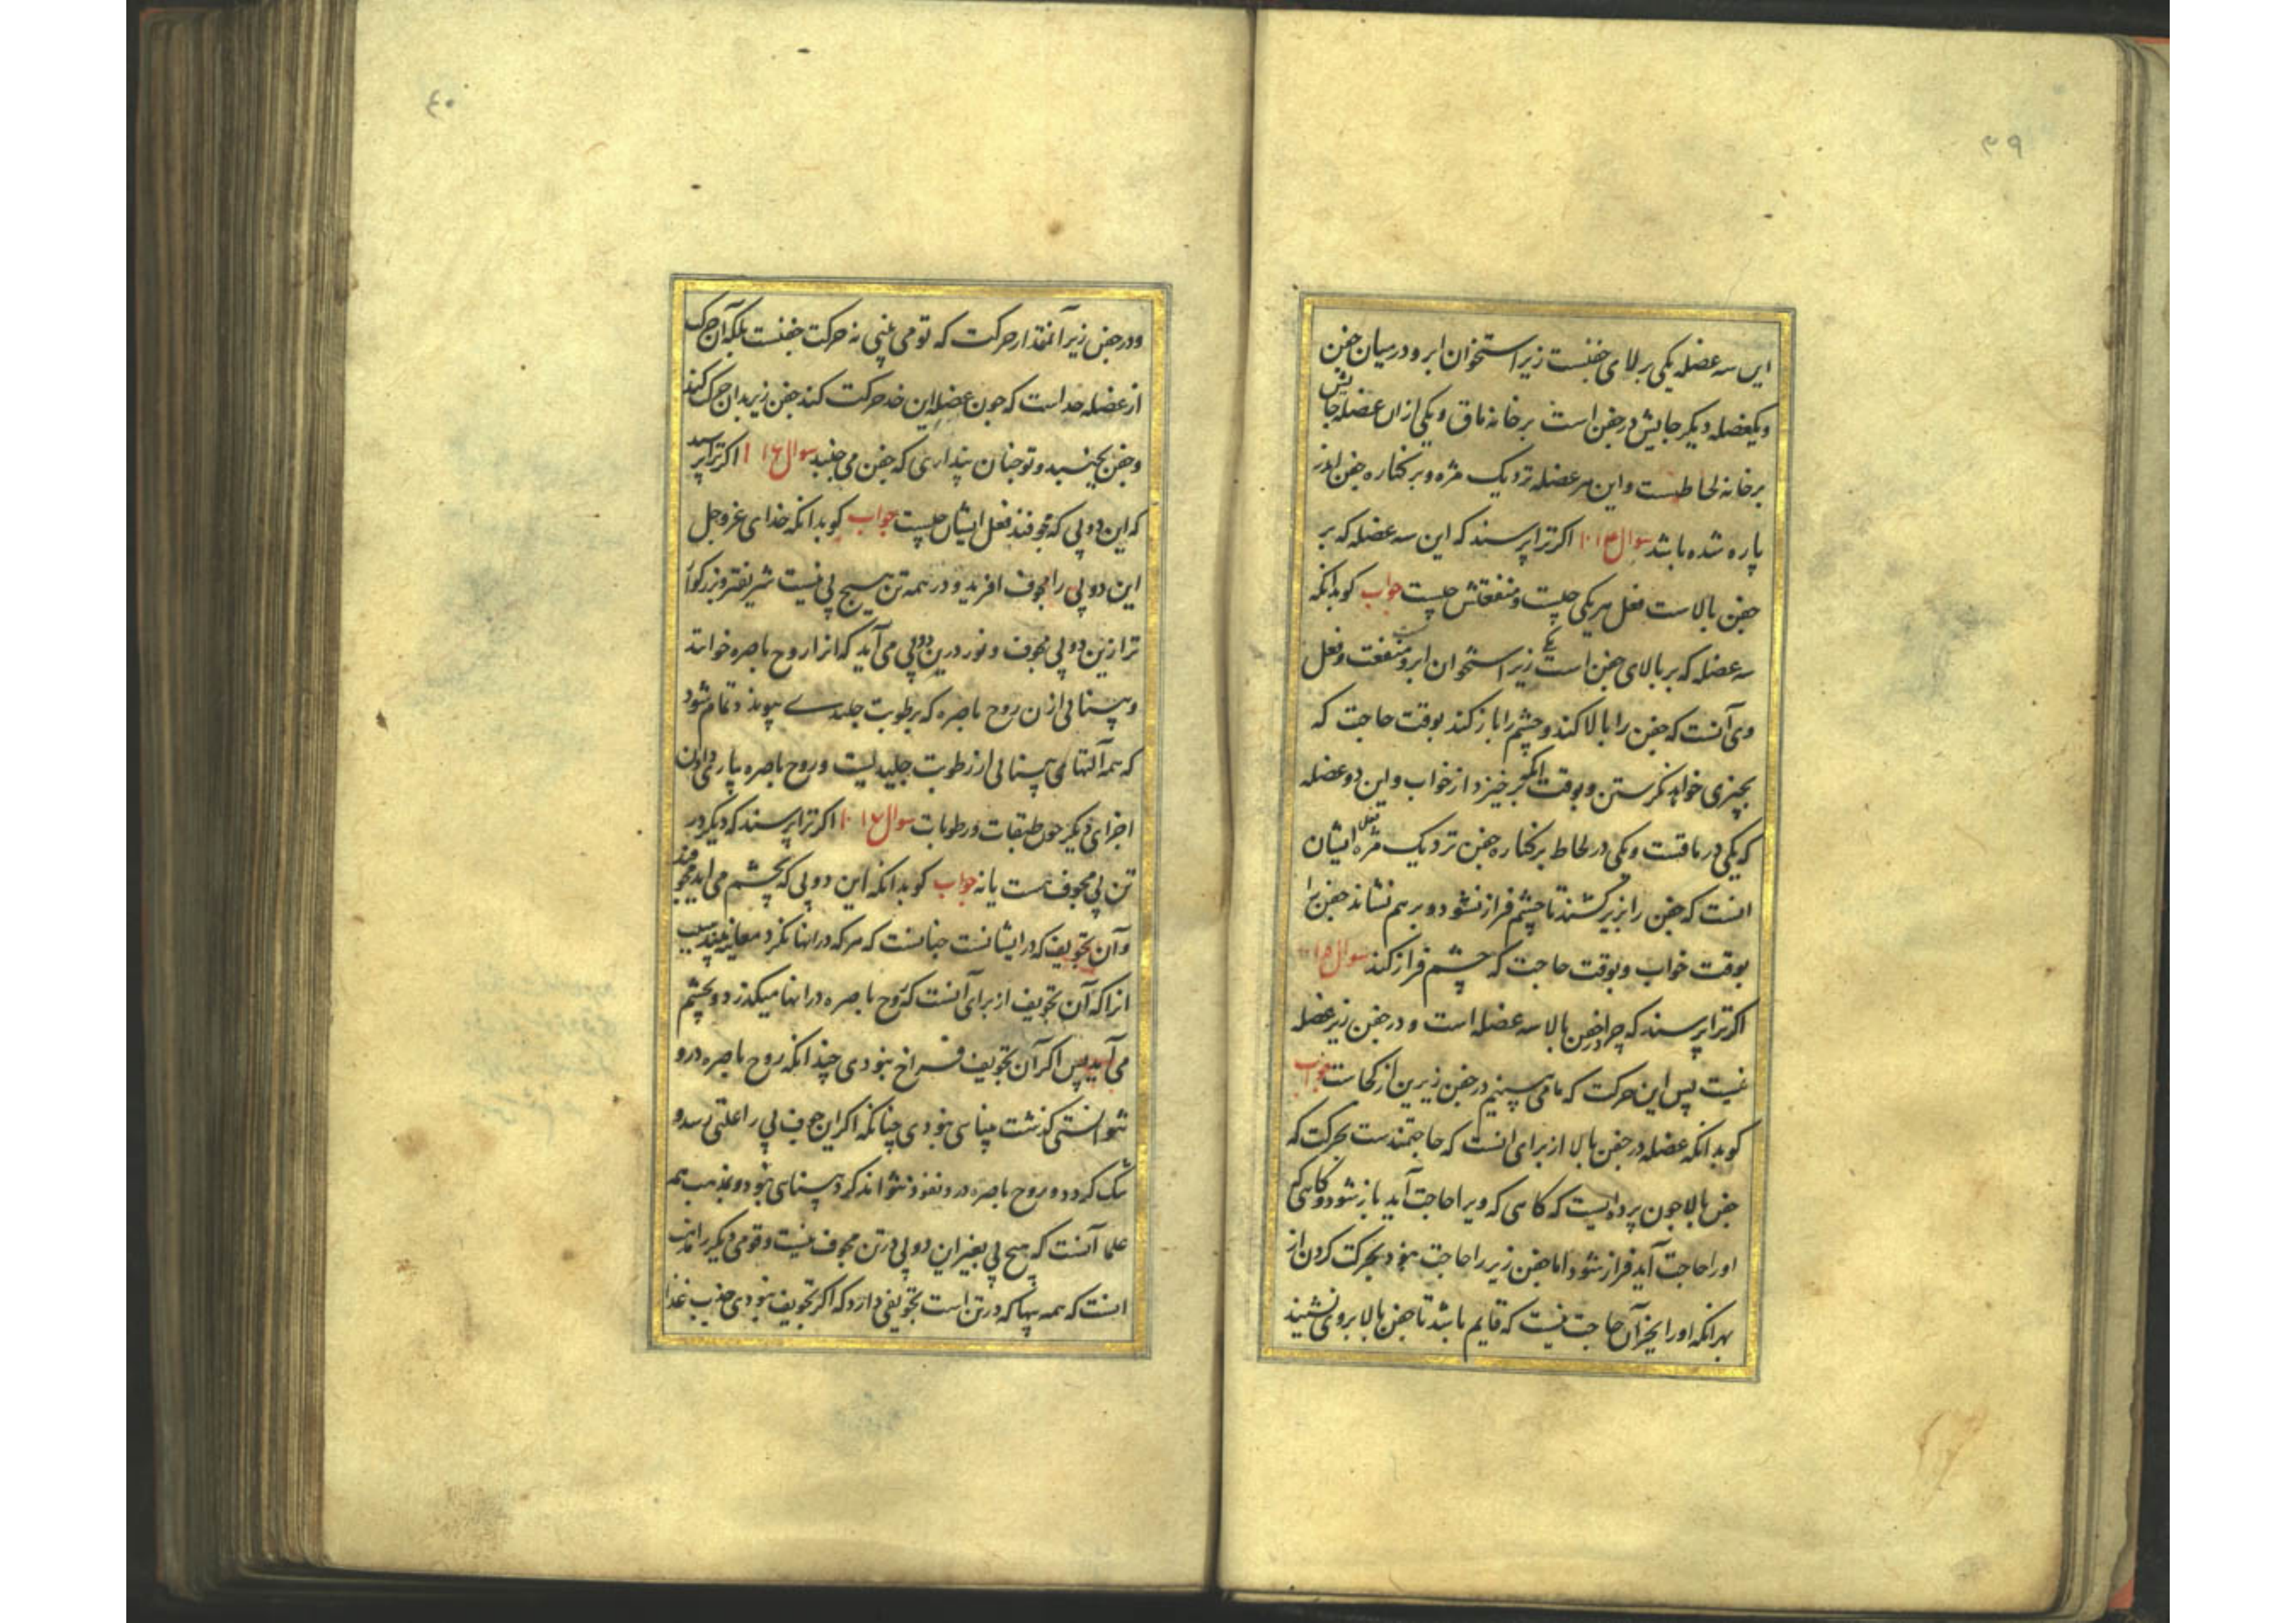 ۳۹
این سه عضله یکی بر بالای جفنست زیر استخوان ابرو در میان جفن
ویکعضله دیکر جایش در جفن است بر خانه ماق ویکی ازان عضله جایش
بر خانه لحاطیست واین هر عضله نزدیک مژه وبر کناره جفن اندر
پاره شده باشد سوال اکر ترا پرسند که این سه عضله که بر
جفن بالاست فعل هریکی چیست ومنفعتش چیست جواب کو بدانکه
سه عضله که بر بالای جفن است یکی زیر استخوان ابرو منفعت وفعل
وی آنست که جفن را بالا کند وچشم را باز کند بوقت حاجت که
بچیزی خواهد نکرستن وبوقت آنکه بر خیزد از خواب واین دو عضله
که یکی در ماقست ویکی در لحاط بر کناره جفن نزدیک مژه فعل ایشان
انست که جفن را بزیر کشند تا چشم فراز شود وبر هم نشاند جفن را
بوقت خواب وبوقت حاجت که چشم فراز کند سوال
اکر ترا پرسند که چرا در جفن بالا سه عضله است ودر جفن زیر عضله
نیست پس این حرکت که ما می بینیم در جفن زیرین از کجاست جواب
کو بدانکه عضله در جفن بالا از برای انست که حاجتمندست بحرکت که
جفن بالا چون پرده ایست که کاهی که ویرا حاجت آید باز شود وکاهی که
اورا حاجت آید فراز شود اما جفن زیر را حاجت نبود بحرکت کردن از
بهر انکه اورا بجز آن حاجت نیست که قایم باشد تا جفن بالا بروی نشیند
۴۰
ودر جفن زیر آنمقدار حرکت که تو می بینی نه حرکت جفنست بلکه آن حرکت
از عضله خد است که چون عضله این خد حرکت کند جفن زیر بدان حرکت کند
وجفن بجنبد وتو چنان پنداری که جفن می جنبد سوال ۱۶ اکر ترا پرسید
که این دو پی که مجوفند فعل ایشان چیست جواب کو بدانکه خدای عزوجل
این دو پی را مجوف افرید ودر همه تن هیچ پی نیست شریفتر وبزرکوار
تر ازین دو پی مجوف ونور درین دو پی می آید که انرا روح باصره خوانند
وبینائی ازان روح باصره که برطوبت جلیدی پیوندد تمام شود
که همه آلتهای بینائی از رطوبت جلیدیست وروح باصره یاری دادن
اجزای دیکر چون طبقات ورطوبات سوال اکر ترا پرسند که دیکر در
تن پی مجوف هست یا نه جواب کو بدانکه این دو پی که بچشم می اید مجوفند
وآن تجویف که در ایشانست چنانست که هرکه در انها نکرد معاینه بیند سبب
انرا که آن تجویف از برای آنست که روح باصره در انها میکذرد وبچشم
می آید پس اکر آن تجویف فراخ نبودی چندانکه روح باصره درو
نتوانستی کذشت بینائی نبودی چنانکه اکر این مجوف پی را علتی رسد و
تنک کردد وروح باصره درو نفوذ نتواند کرد بینائی نبود ومذهب همه
علما آنست که هیچ پی بغیر این دو پی در تن مجوف نیست وقومی دیکر را مذهب
انست که همه پیها که در تن است تجویفی دارد که اکر تجویف نبودی جذب غذا